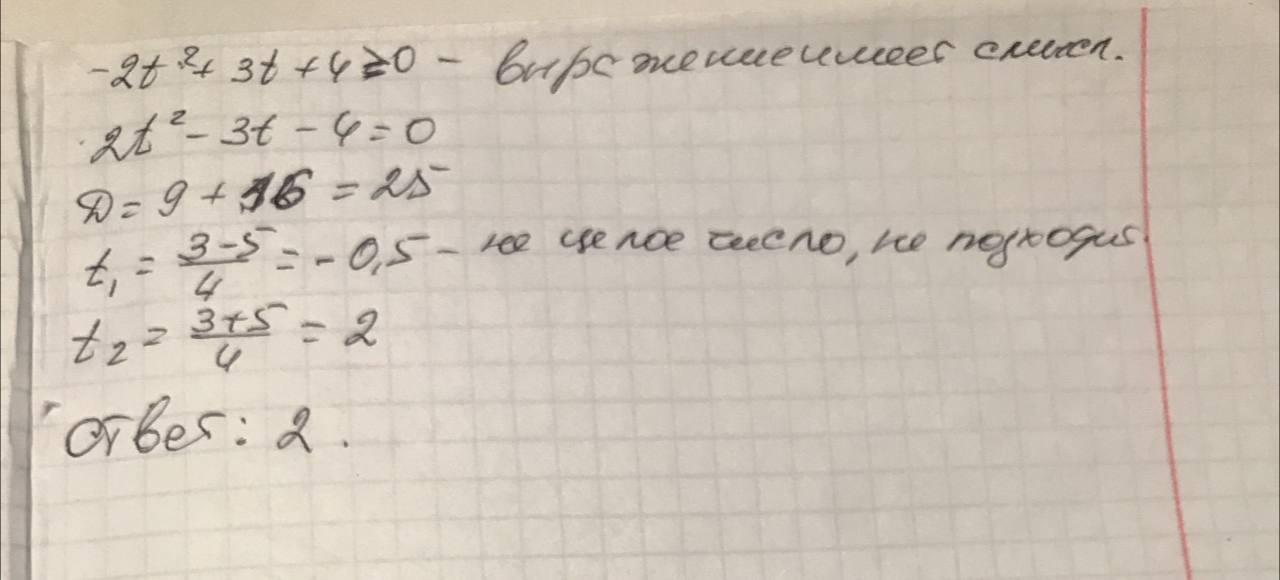 -2t² + 3t + 4 ≥ 0 - выражение имеет смысл.
2t² - 3t - 4 = 0
Д = 9 + 16 = 25
t₁ = (3-5)/4 = -0,5 - не целое число, не подходит.
t₂ = (3+5)/4 = 2
Ответ: 2.